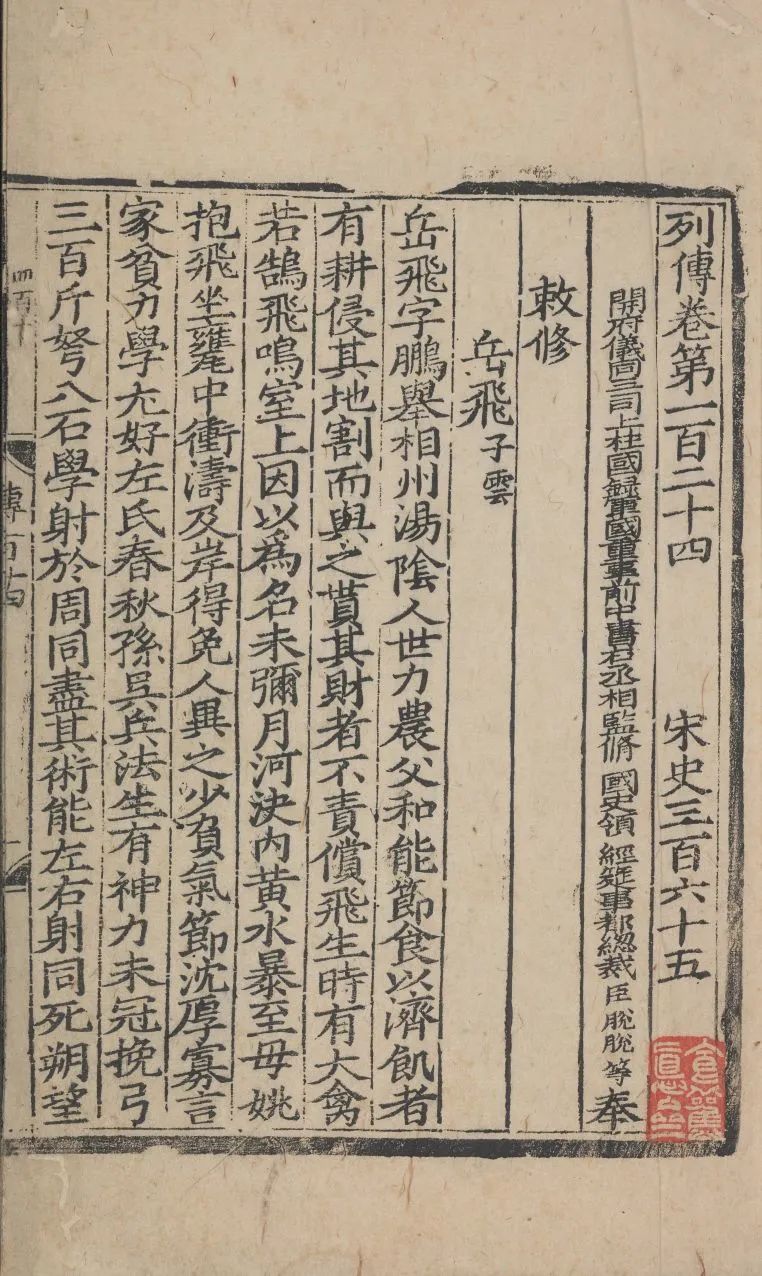 列傳卷第一百二十四 宋史三百六十五
開府儀同三司上柱國録軍國重事前中書右丞相監脩 國史領 經筵事都緫裁臣脫脫等奉
敕修
岳飛子雲
岳飛字鵬舉相州湯陰人世力農父和能節食以濟飢者
有耕侵其地割而與之貰其財者不責償飛生時有大禽
若鵠飛鳴室上因以爲名未彌月河決內黃水暴至母姚
抱飛坐甕中衝濤及岸得免人異之少負氣節沈厚寡言
家貧力學尤好左氏春秋孫吳兵法生有神力未冠挽弓
三百斤弩八石學射於周同盡其術能左右射同死朔望